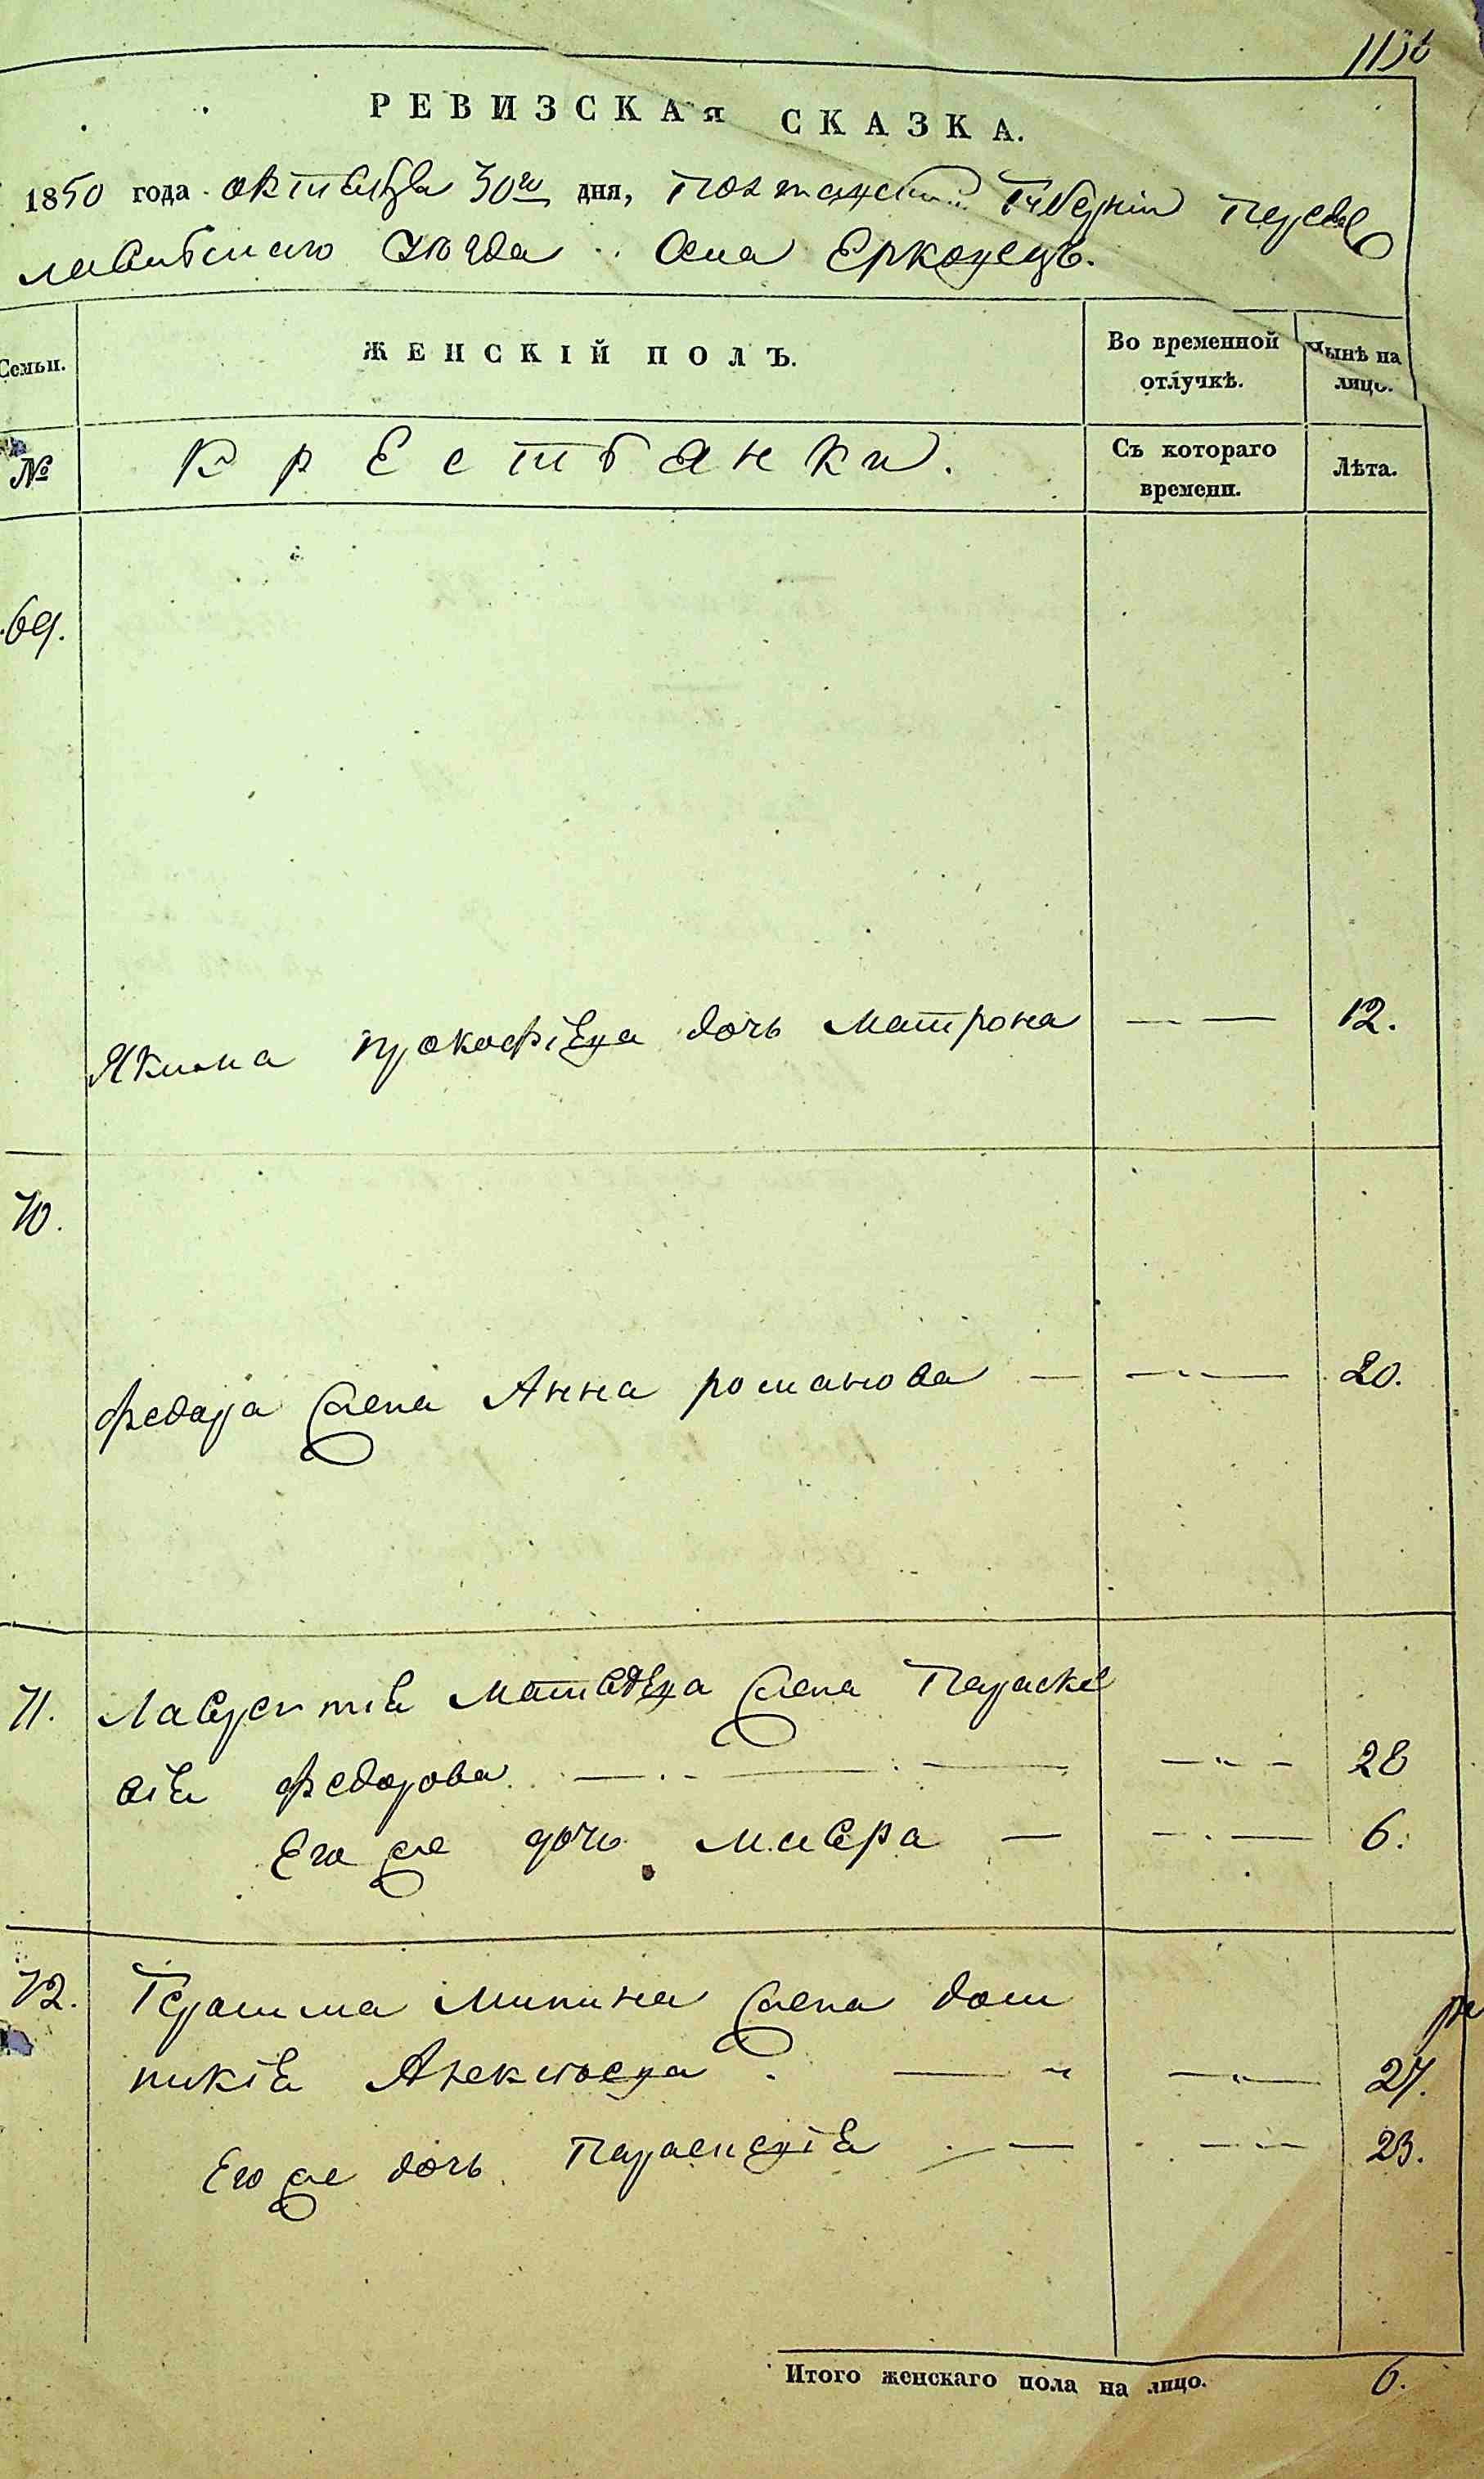 РЕВИЗСКАЯ СКАЗКА.
1850 года октября 30го дня, Полтавской Губерніи Переяс
лавскаго уѣзда села Ерковецъ.
Семьи.
ЖЕНСКІЙ ПОЛЪ.
Во временной
отлучкѣ.
Нынѣ на
лицо.
№
Крестьянки.
Съ котораго
времени.
Лѣта.
69.
Якима Прокофіева дочь Матрона — — 12.
70.
Федора жена Анна романова — — — 20.
71. Лаврентія Матвѣева жена Параске
вія Федорова — — — — — 28
Его же дочь Мавра — — — 6.
72. Герасима Минина жена дом
никія Алексѣева — — 27.
Его же дочь Параскевія — — — 23.
Итого женскаго пола на лицо. 6.